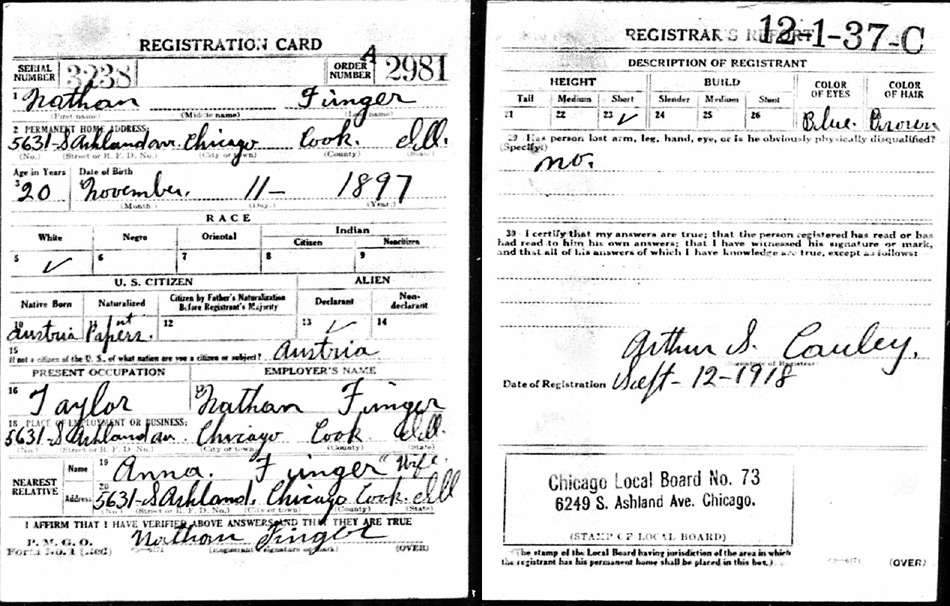 REGISTRATION CARD
SERIAL NUMBER 3238 ORDER NUMBER A 2981
1 Nathan Finger
(First name) (Middle name) (Last name)
2 PERMANENT HOME ADDRESS:
5631-S Ashland av. Chicago Cook. Ill.
(No.) (Street or R. F. D. No.) (City or town) (County) (State)
Age in Years Date of Birth
3 20 November. 11- 1897
(Month.) (Day.) (Year.)
RACE
White Negro Oriental Indian
Citizen Noncitizen
5 ✓ 6 7 8 9
U. S. CITIZEN ALIEN
Native Born Naturalized Citizen by Father's Naturalization Before Registrant's Majority Declarant Non-declarant
10 Austria 1st Papers. 12 13 ✓ 14
15 If not a citizen of the U. S., of what nation are you a citizen or subject? Austria
PRESENT OCCUPATION EMPLOYER'S NAME
16 Taylor Nathan Finger
18 PLACE OF EMPLOYMENT OR BUSINESS:
5631-S Ashland av. Chicago Cook Ill.
(No.) (Street or R. F. D. No.) (City or town) (County) (State)
NEAREST RELATIVE Name 19 Anna. Finger "Wife"
Address 20 5631-S Ashland. Chicago Cook. Ill
(No.) (Street or R. F. D. No.) (City or town) (County) (State)
I AFFIRM THAT I HAVE VERIFIED ABOVE ANSWERS AND THAT THEY ARE TRUE
P. M. G. O.
Form No. 1 (Red) Nathan Finger
(Registrant's signature or mark) (OVER)
REGISTRAR'S REPORT 12-1-37-C
DESCRIPTION OF REGISTRANT
HEIGHT BUILD COLOR OF EYES COLOR OF HAIR
Tall Medium Short Slender Medium Stout
21 22 23 ✓ 24 25 26 Blue. Brown
29 Has person lost arm, leg, hand, eye, or is he obviously physically disqualified?
(Specify.)
no.
30 I certify that my answers are true; that the person registered has read or has
had read to him his own answers; that I have witnessed his signature or mark,
and that all of his answers of which I have knowledge are true, except as follows:
Arthur S. Cauley.
(Signature of Registrar)
Date of Registration Sept-12-1918
Chicago Local Board No. 73
6249 S. Ashland Ave. Chicago.
(STAMP OF LOCAL BOARD)
(The stamp of the Local Board having jurisdiction of the area in which
the registrant has his permanent home shall be placed in this box.)
(OVER)